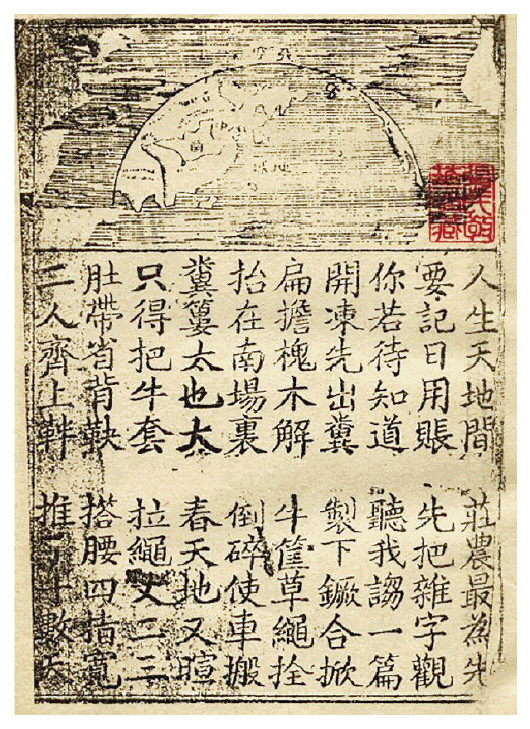 人生天地間　莊農最為先
要記日用賬　先把雜字觀
你若待知道　聽我謅一篇
開凍先出糞　製下鐝合掀
扁擔槐木解　牛筐草繩拴
抬在南場裏　倒碎使車搬
糞簍太也大　春天地又暄
只得把牛套　拉繩丈二三
肚帶省背鞅　搭腰四指寬
二人齊上靽　推十數天